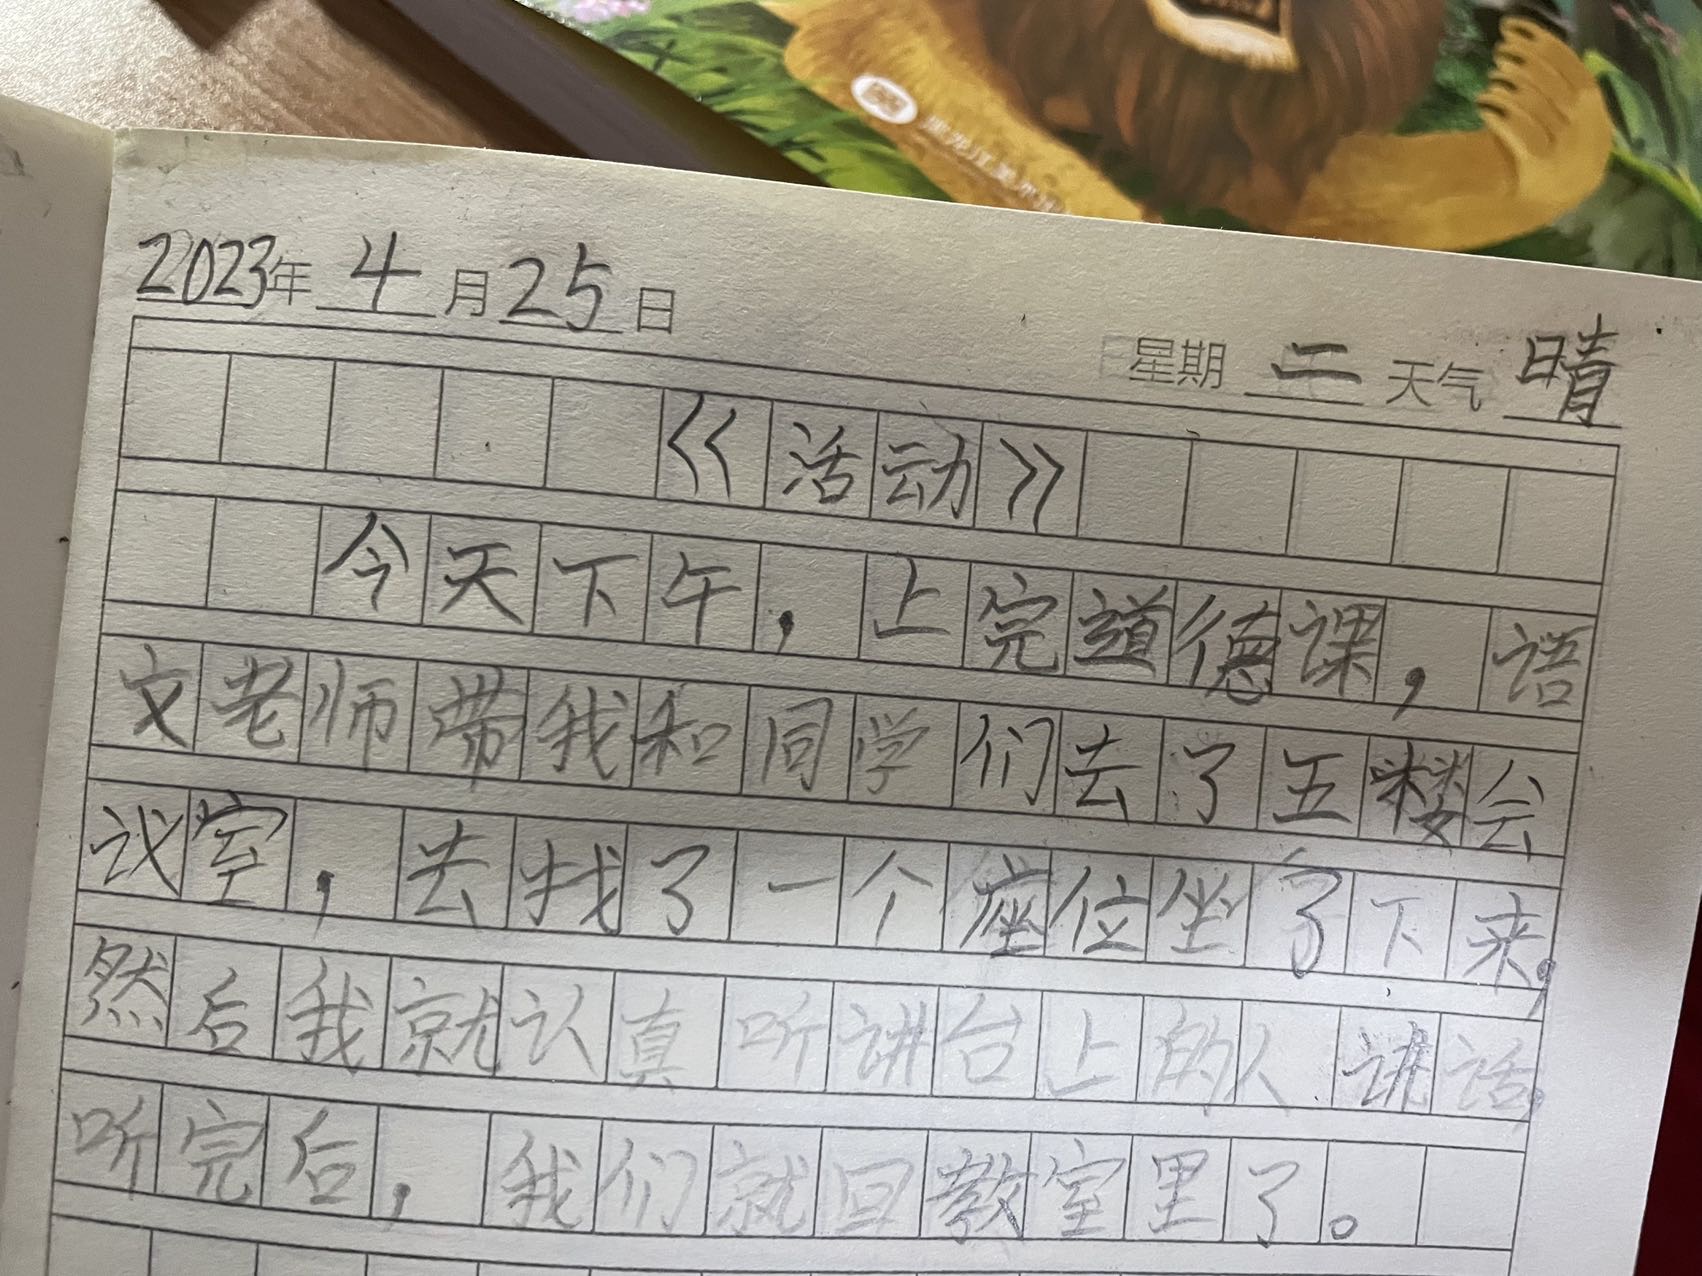 黑龙江美术
2023年 4 月 25 日
星期 二 天气 晴
《活动》
今天下午，上完道德课，语
文老师带我和同学们去了五楼会
议室，去找了一个座位坐了下来，
然后我就认真听讲台上的人讲话，
听完后，我们就回教室里了。